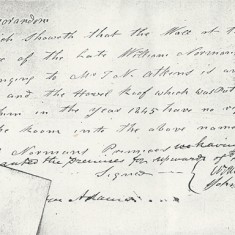 orandon
ich showeth that the Wall at th
r of the late William Norman
nging to Mr. J. N. Atkins is an
and the Hovel Roof which was Put
hem in the year 1845 have no r
he Room into the above name
Normans Premises we having
the premises for upwards of
Signed
Adams